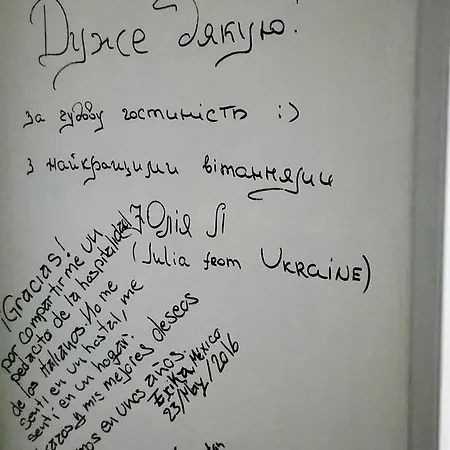 Дуже дякую!
за чудову гостиність :)
з найкращими вітаннями
Юлія Л
(Julia from UKRAINE)
¡Gracias!
por compartirme un
pedacito de la hospitalidad
de los italianos. No me
sentí en un hostal, me
sentí en un hogar.
y mis mejores deseos
en unos años.
Erika México
23/May/2016